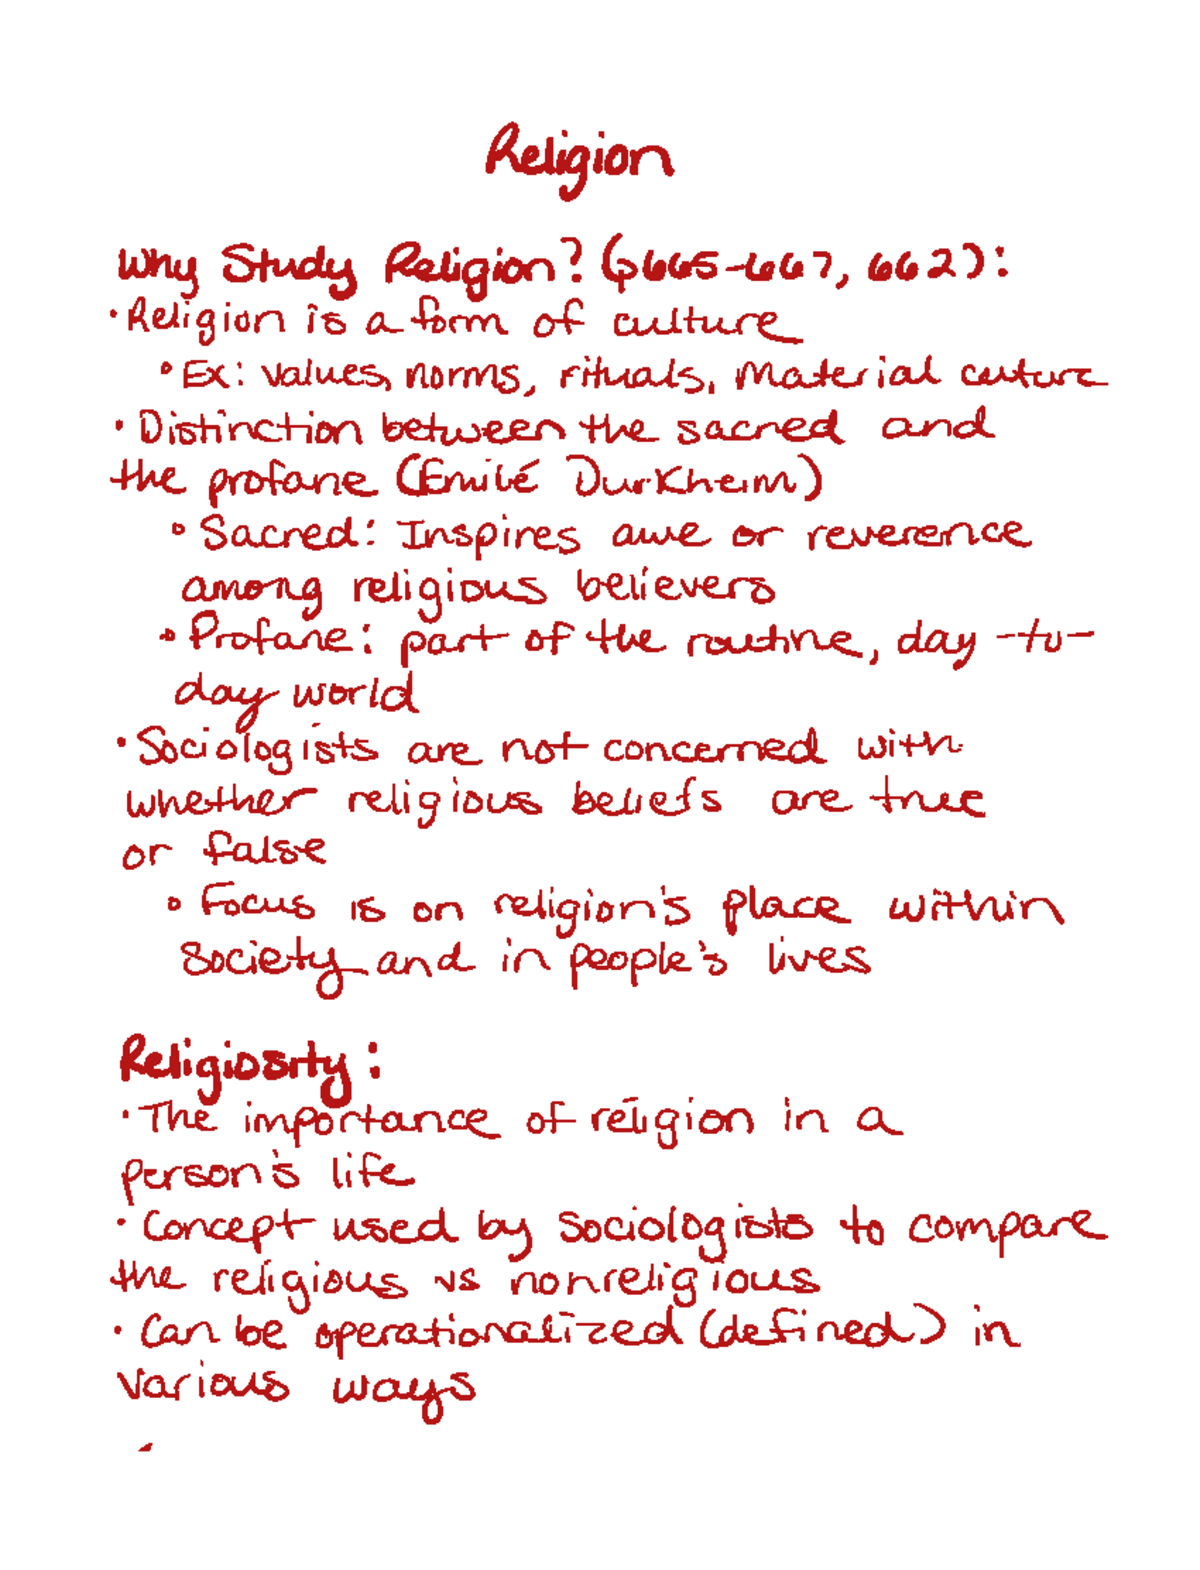 Religion
Why Study Religion? (p665-667, 662):
• Religion is a form of culture
◦ Ex: values, norms, rituals, material culture
• Distinction between the sacred and
the profane (Emilé Durkheim)
◦ Sacred: Inspires awe or reverence
among religious believers
◦ Profane: part of the routine, day-to-
day world
• Sociologists are not concerned with
whether religious beliefs are true
or false
◦ Focus is on religion's place within
society and in people's lives
Religiosity:
• The importance of religion in a
person's life
• Concept used by sociologists to compare
the religious vs nonreligious
• Can be operationalized (defined) in
various ways